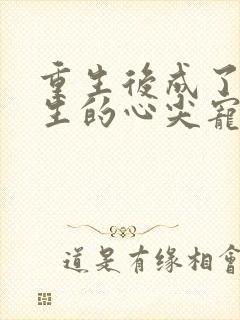 重生後成了
生的心尖寵
道是有缘相會